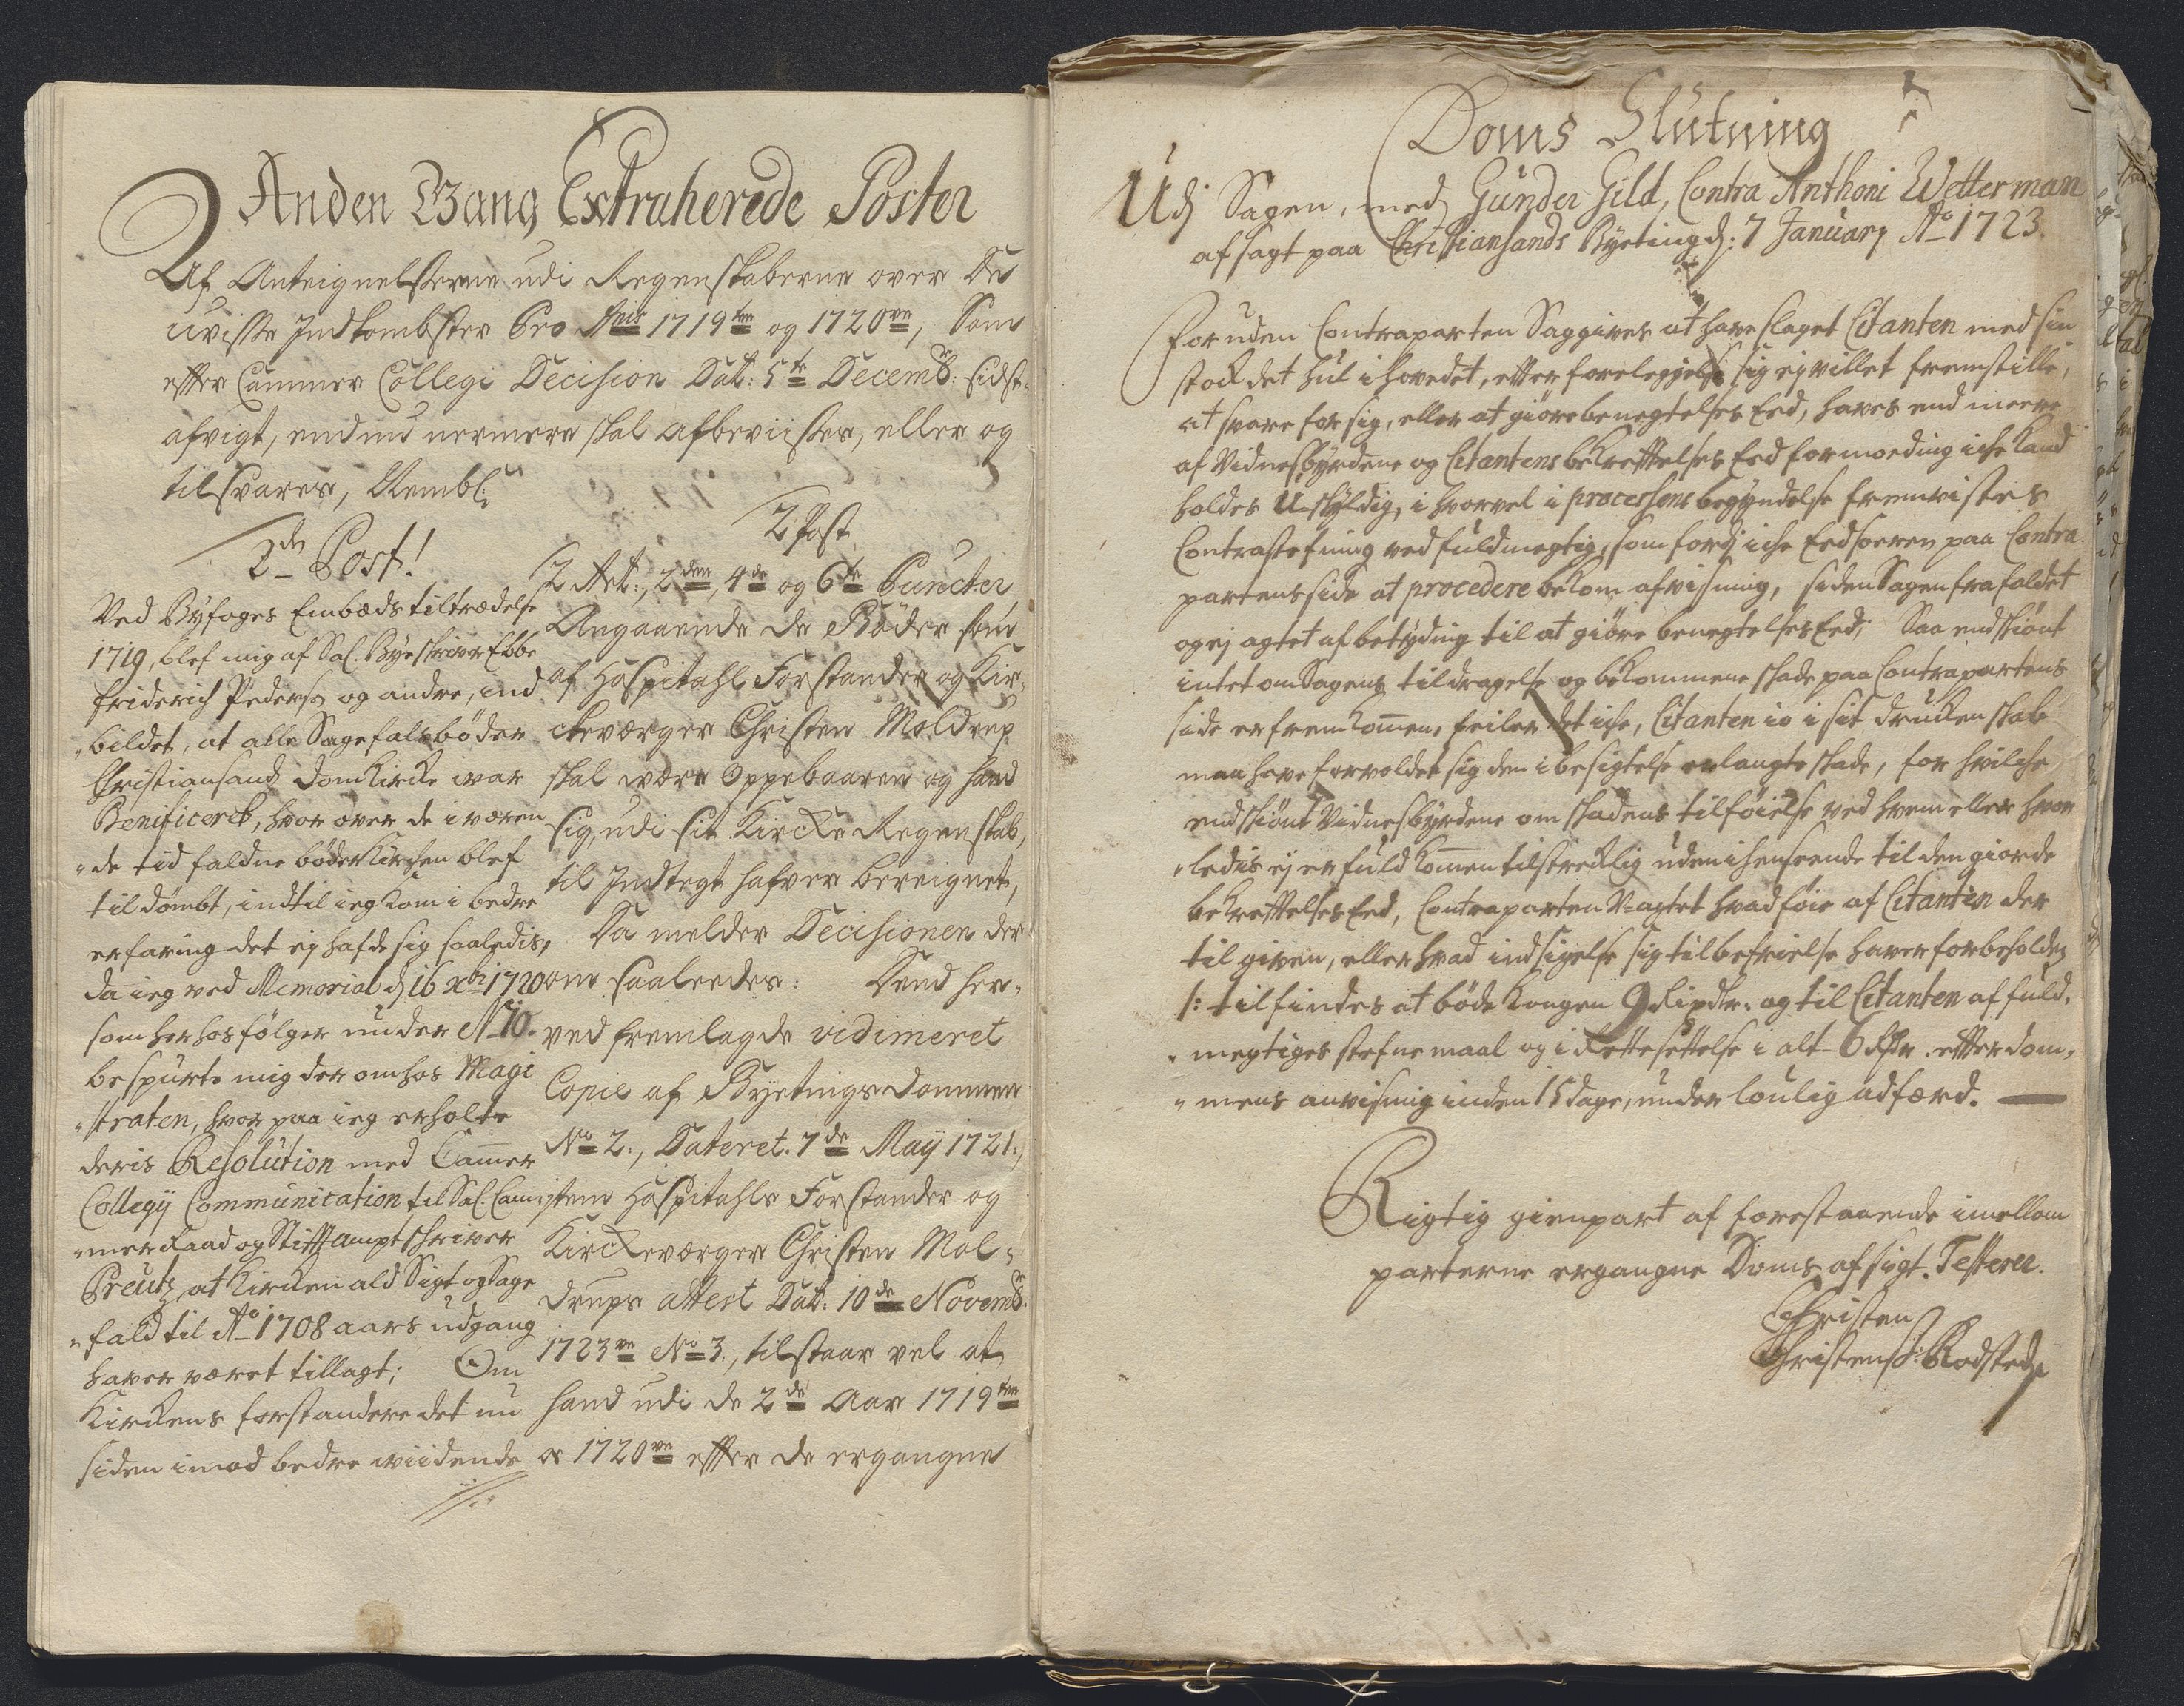 Anden Gang Extraherede Poster
Af Anteignelserne udi Regenskaberne over De
uvisse Indkombster Pro Anis 1719ten og 1720ve, Som
effter Cammer Collegi Decision Dat: 5te Decembr: sidst-
afvigt, endnu nermere skal afbeviisses, eller og
tilsvares, Nembl:
2den Post!
Ved Byfoges Embeds tiltrædelse
1719, blef mig af Sal. Byeskriver Ebbe
Friderich Pedersen og andre, ind
bildet, at alle Sagefalsbøder
Christiansand Domkircke war
Benificeret, hvor over de i væren
de tid faldne bøder Kirchen blef
tildømbt, indtil ieg kom i bedre
erfaring det ej hafde sig saaledis,
da ieg ved Memorial d. 16 xbr 1720
som herhos følger under No 10.
bespurte mig der om hos Magi
straten, hvor paa ieg erholte
deris Resolution med Camer
Collegij Communication til Sal. Cam
mer Raad og Stifftamptschriver
Preutz, at Kircken ald Sigt og Sage
fald til Ao 1708 aars udgang
haver været tillagt; Om
Kirckens forstandere det nu
siden imod bedre wiidende
2 Post
2 Art:, 2den, 4de og 6te Puncter
Angaaende de Bøder som
af Hospitahls Forstander og Kir-
ckeværger Christen Moldrup
skal være Oppebaaren og hand
sig, udi sit Kircke Regenskab,
til Indtegt hafver bereignet,
Da melder Decisionen der
om saaleedes: Dend her-
ved fremlagde vidimeret
Copie af Byetings Dommen
No 2:, Dateret. 7de Maij 1721:,
item Hospitahls Forstander og
Kirckeværger Christen Mol-
drups attest Dat: 10de Novembr.
1723ve No 3., tilstaar vel at
hand udi de 2de Aar 1719ten
og 1720ve effter de ergangne
Doms Slutning
Udj Sagen, med Gunder Gild, Contra Anthoni Wetterman
afsagt paa Christiansands Byeting d: 7 January Ao 1723.
Foruden Contraparten Saggives at have slaget Citanten med sin
stock det hul i hovedet, efter foreleggelse sig ej villet fremstille,
at svare for sig, eller at giøre benegtelses Eed, haves end meere
af Vidnesbyrdene og Citantens bekreftelses Eed formoeding iche kand
holdes Uskyldig, i hvorvel i processens begyndelse fremvistes
Contrastefning ved fuldmegtig, som fordj iche Eedsoeren paa Contra
partens side at procedere bekom afvisning, siden Sagen frafaldet
og ej agtet af betyding til at giøre benegtelses Eed; Saa endskiønt
intet om Sagens tildragelse og bekommene skade paa Contrapartens
side er fremkommen, feiler det iche, Citanten io i sit druckenskab
maa have forvoldet sig den i besigtelse erlangte skade, for hvilche
endskiønt Vidnesbyrdene om skadens tilføielse ved hvem eller hvor
ledis ej er fuldkommen tilstrecklig uden i henseende til den giorde
bekreftelses Eed, Contraparten U-agtet hvad føie af Citanten der
til given, eller hvad indsigelse sig til befrielse haver forbeholden
/: tilfindes at bøde Kongen 9 Rixdlr. og til Citanten af fuld-
megtiges stefnemaal og i Rettesettelse i alt 6 Rdr. efter dom-
mens anvisning inden 15 dage, under loulig adfærd.
Rigtig gienpart af forestaaende imellom
parterne ergangne Doms afsigt. Testerer.
Christen
Christens: Rodsted